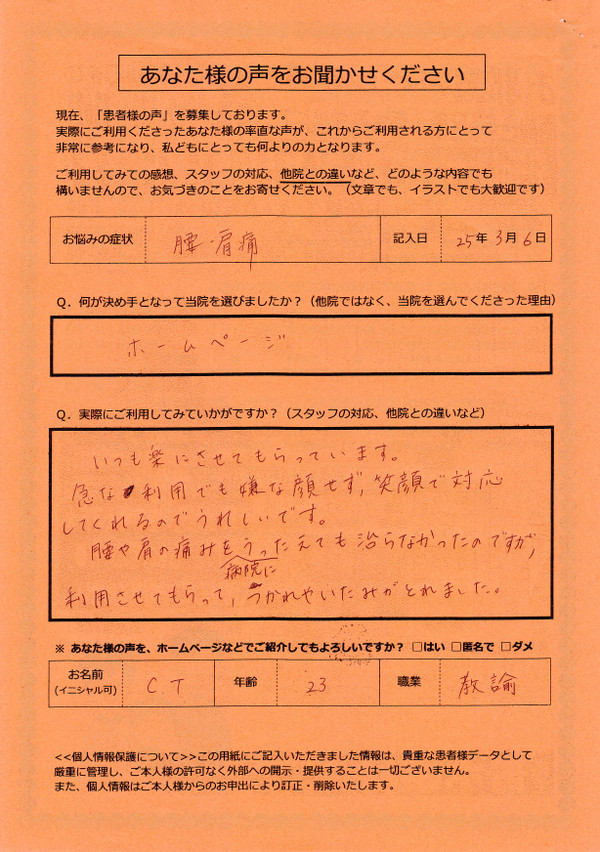 あなた様の声をお聞かせください
現在、「患者様の声」を募集しております。
実際にご利用くださったあなた様の率直な声が、これからご利用される方にとって
非常に参考になり、私どもにとっても何よりの力となります。
ご利用してみての感想、スタッフの対応、他院との違いなど、どのような内容でも
構いませんので、お気づきのことをお寄せください。（文章でも、イラストでも大歓迎です）
お悩みの症状 腰・肩痛 記入日 25年3月6日
Q．何が決め手となって当院を選びましたか？（他院ではなく、当院を選んでくださった理由）
ホームページ
Q．実際にご利用してみていかがですか？（スタッフの対応、他院との違いなど）
いつも楽にさせてもらっています。
急な利用でも嫌な顔せず，笑顔で対応
してくれるのでうれしいです。
腰や肩の痛みをうったえても治らなかったのですが，
病院に
利用させてもらって，つかれやいたみがとれました。
※ あなた様の声を、ホームページなどでご紹介してもよろしいですか？ □はい □匿名で □ダメ
お名前 (イニシャル可) C.T 年齢 23 職業 教諭
<<個人情報保護について>>この用紙にご記入いただきました情報は、貴重な患者様データとして
厳重に管理し、ご本人様の許可なく外部への開示・提供することは一切ございません。
また、個人情報はご本人様からのお申出により訂正・削除いたします。